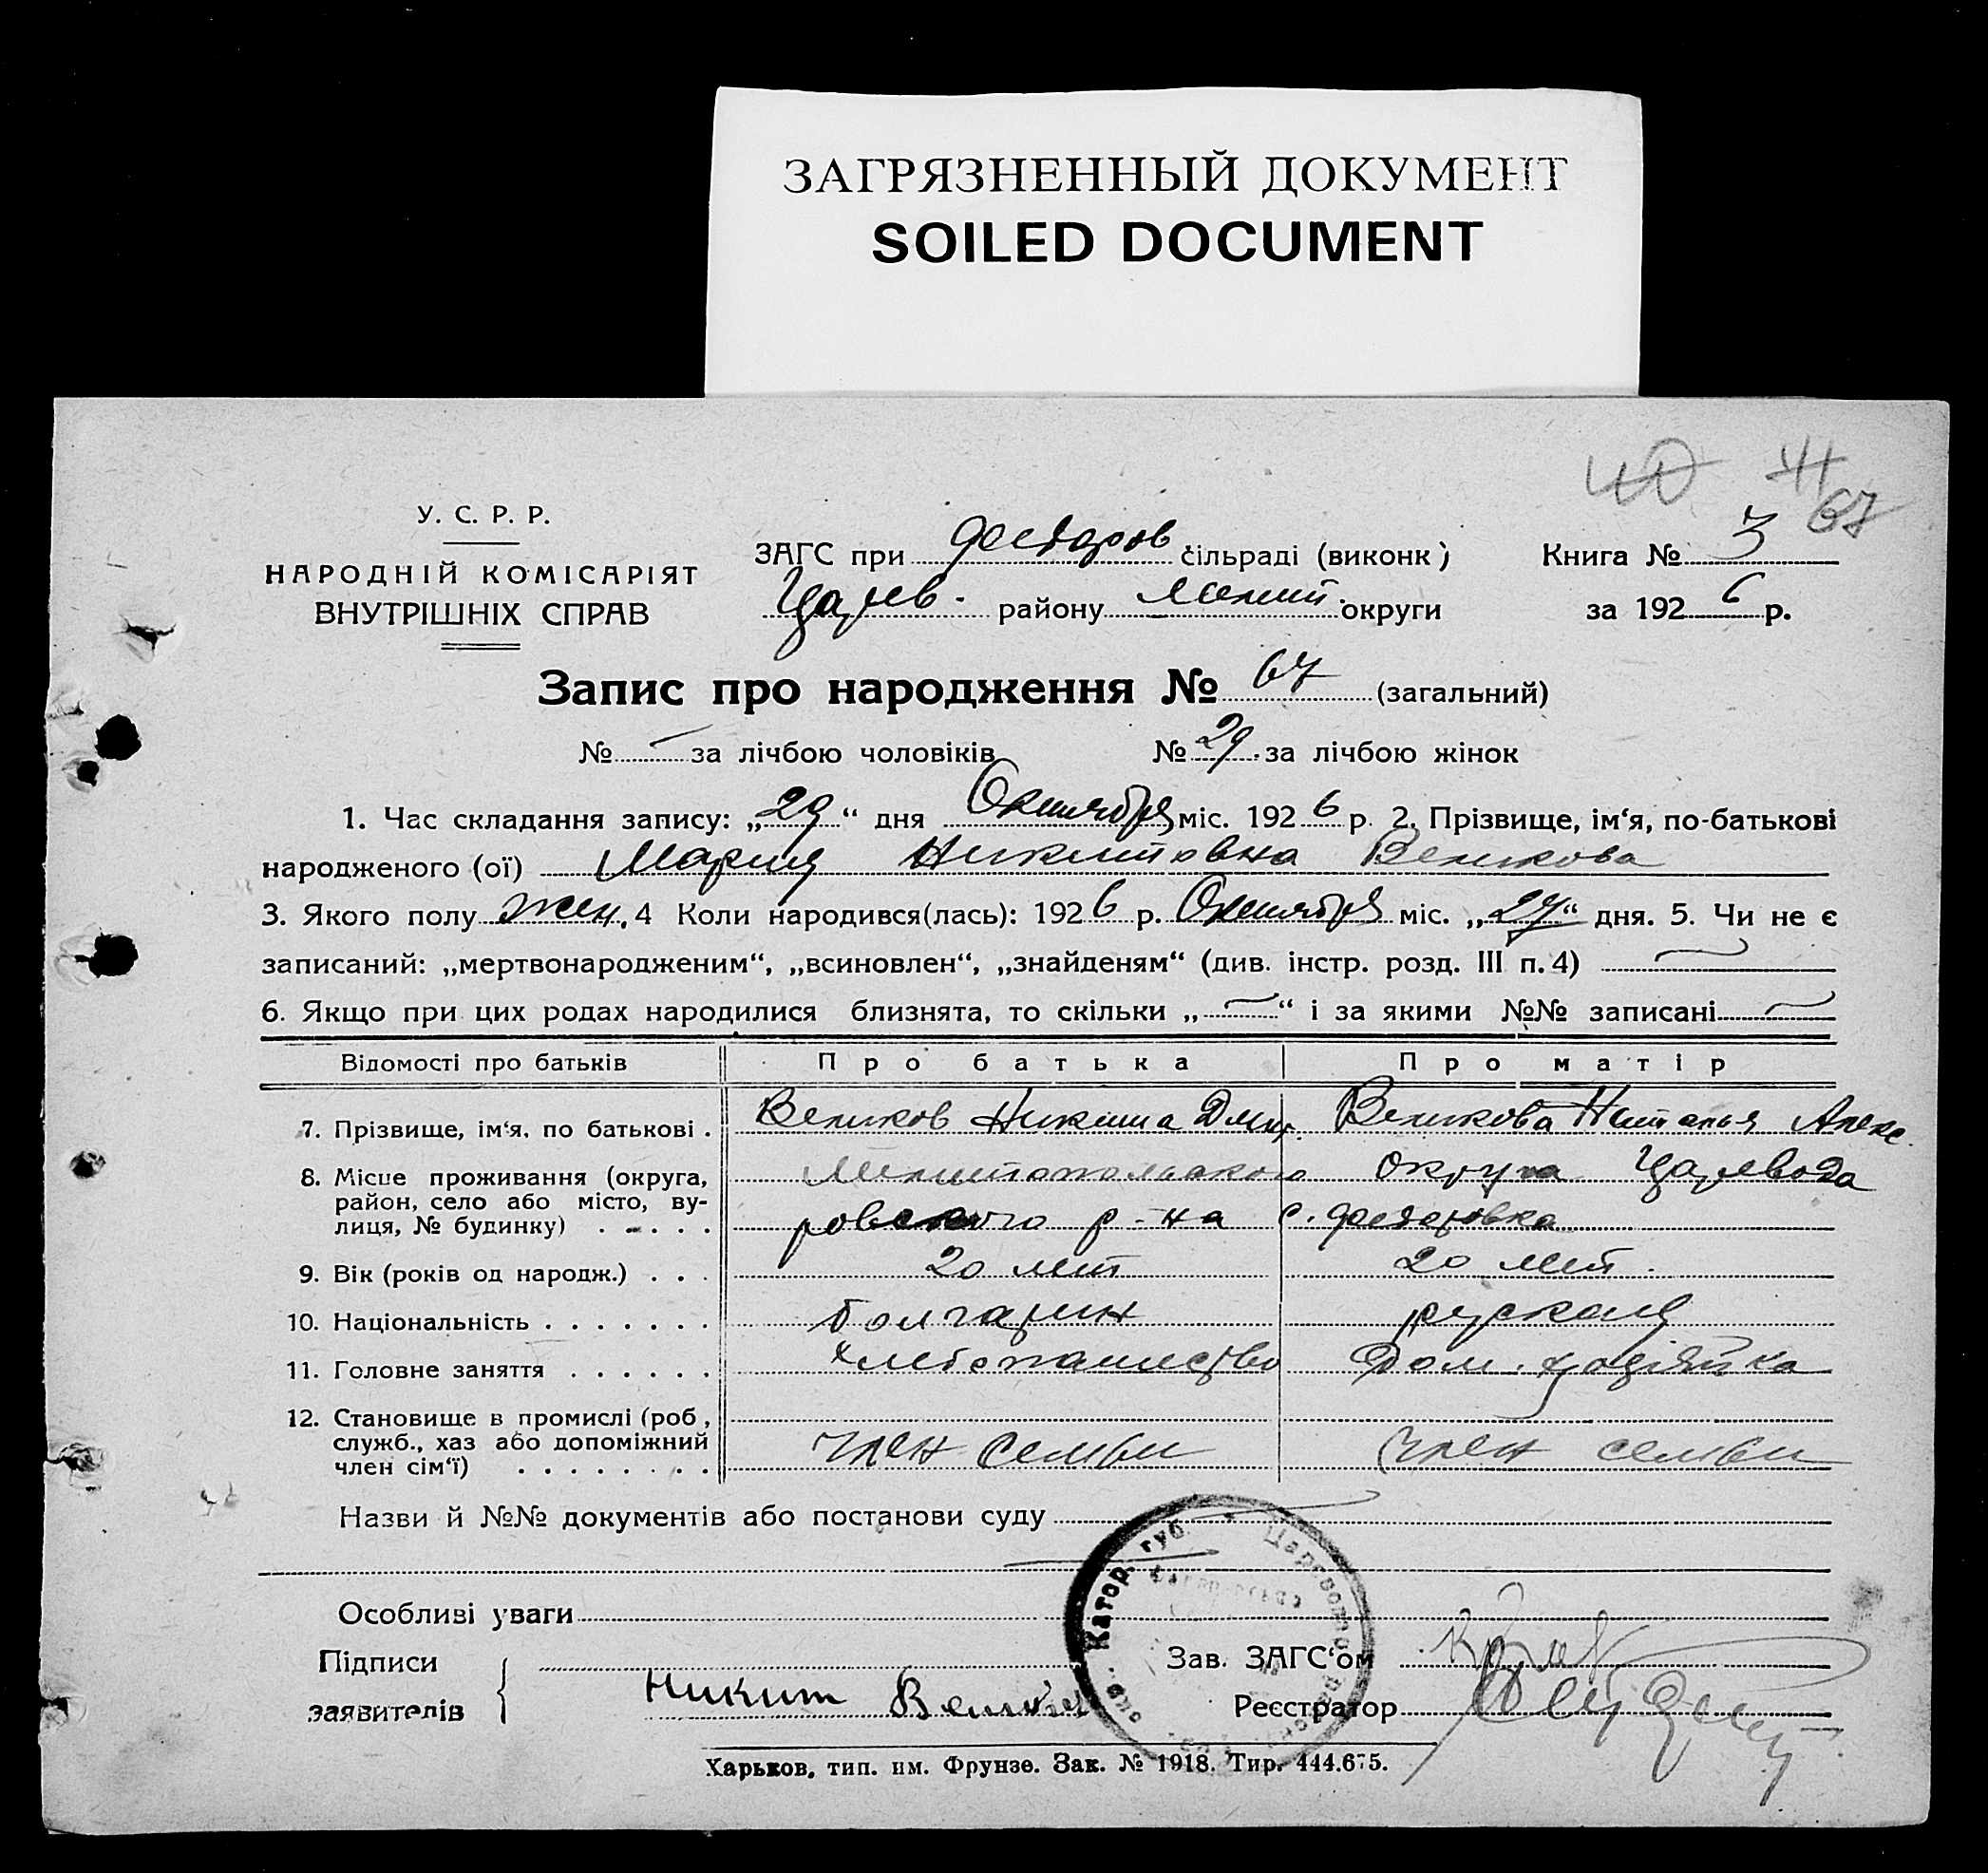 ЗАГРЯЗНЕННЫЙ ДОКУМЕНТ
SOILED DOCUMENT
40 41
67
У. С. Р. Р.
НАРОДНІЙ КОМІСАРІЯТ
ВНУТРІШНІХ СПРАВ
ЗАГС при Федоров сільраді (виконк) Книга № 3
Царев. району Мелит. округи за 1926 р.
Запис про народження № 67 (загальний)
№ — за лічбою чоловіків № 29 за лічбою жінок
1. Час складання запису: „29“ дня Октября міс. 1926 р. 2. Прізвище, ім‘я, по-батькові
народженого (ої) Мария Никитовна Великова
3. Якого полу жен. 4 Коли народився(лась): 1926 р. Октября міс. „27“ дня. 5. Чи не є
записаний: „мертвонародженим“, „всиновлен“, „знайденям“ (див. інстр. розд. III п. 4) —
6. Якщо при цих родах народилися близнята, то скільки „—“ і за якими №№ записані —
Відомості про батьків Про батька Про матір
7. Прізвище, ім‘я, по батькові . Великов Никита Дмит. Великова Наталья Алекс.
8. Місце проживання (округа, Мелитопольского округа Царевода
район, село або місто, ву-
лиця, № будинку) . . . . . ровского р-на с. Федоровка
9. Вік (років од народж.) . . . 20 лет 20 лет.
10. Національність . . . . . . . болгарин руская
11. Головне заняття . . . . . . хлебопашество Дом. хозяйка
12. Становище в промислі (роб,
служб., хаз або допоміжний член семьи член семьи
член сім‘ї) . . . . . . . .
Назви й №№ документів або постанови суду
Особливі уваги
Підписи Зав. ЗАГС‘ом
заявителів Никит Велик Реєстратор
окр. Катор. губ. Царевод р
Харьков, тип. им. Фрунзе. Зак. № 1918. Тир. 444.675.